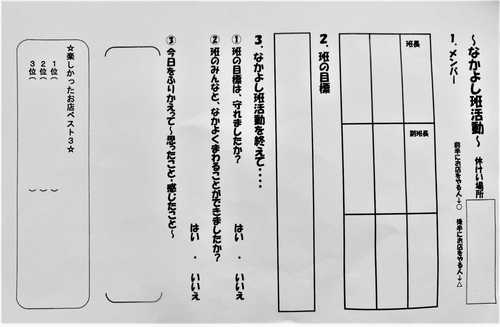 ～なかよし班活動～
休けい場所
1．メンバー
前半にお店をやる人→○　後半にお店をやる人→△
班長
副班長
2．班の目標
3．なかよし班活動を終えて････
①班の目標は、守れましたか？　はい　・　いいえ
②班のみんなと、なかよくまわることができましたか？
はい　・　いいえ
③今日をふりかえって～思ったこと・感じたこと～
☆楽しかったお店ベスト3☆
1位（　）
2位（　）
3位（　）